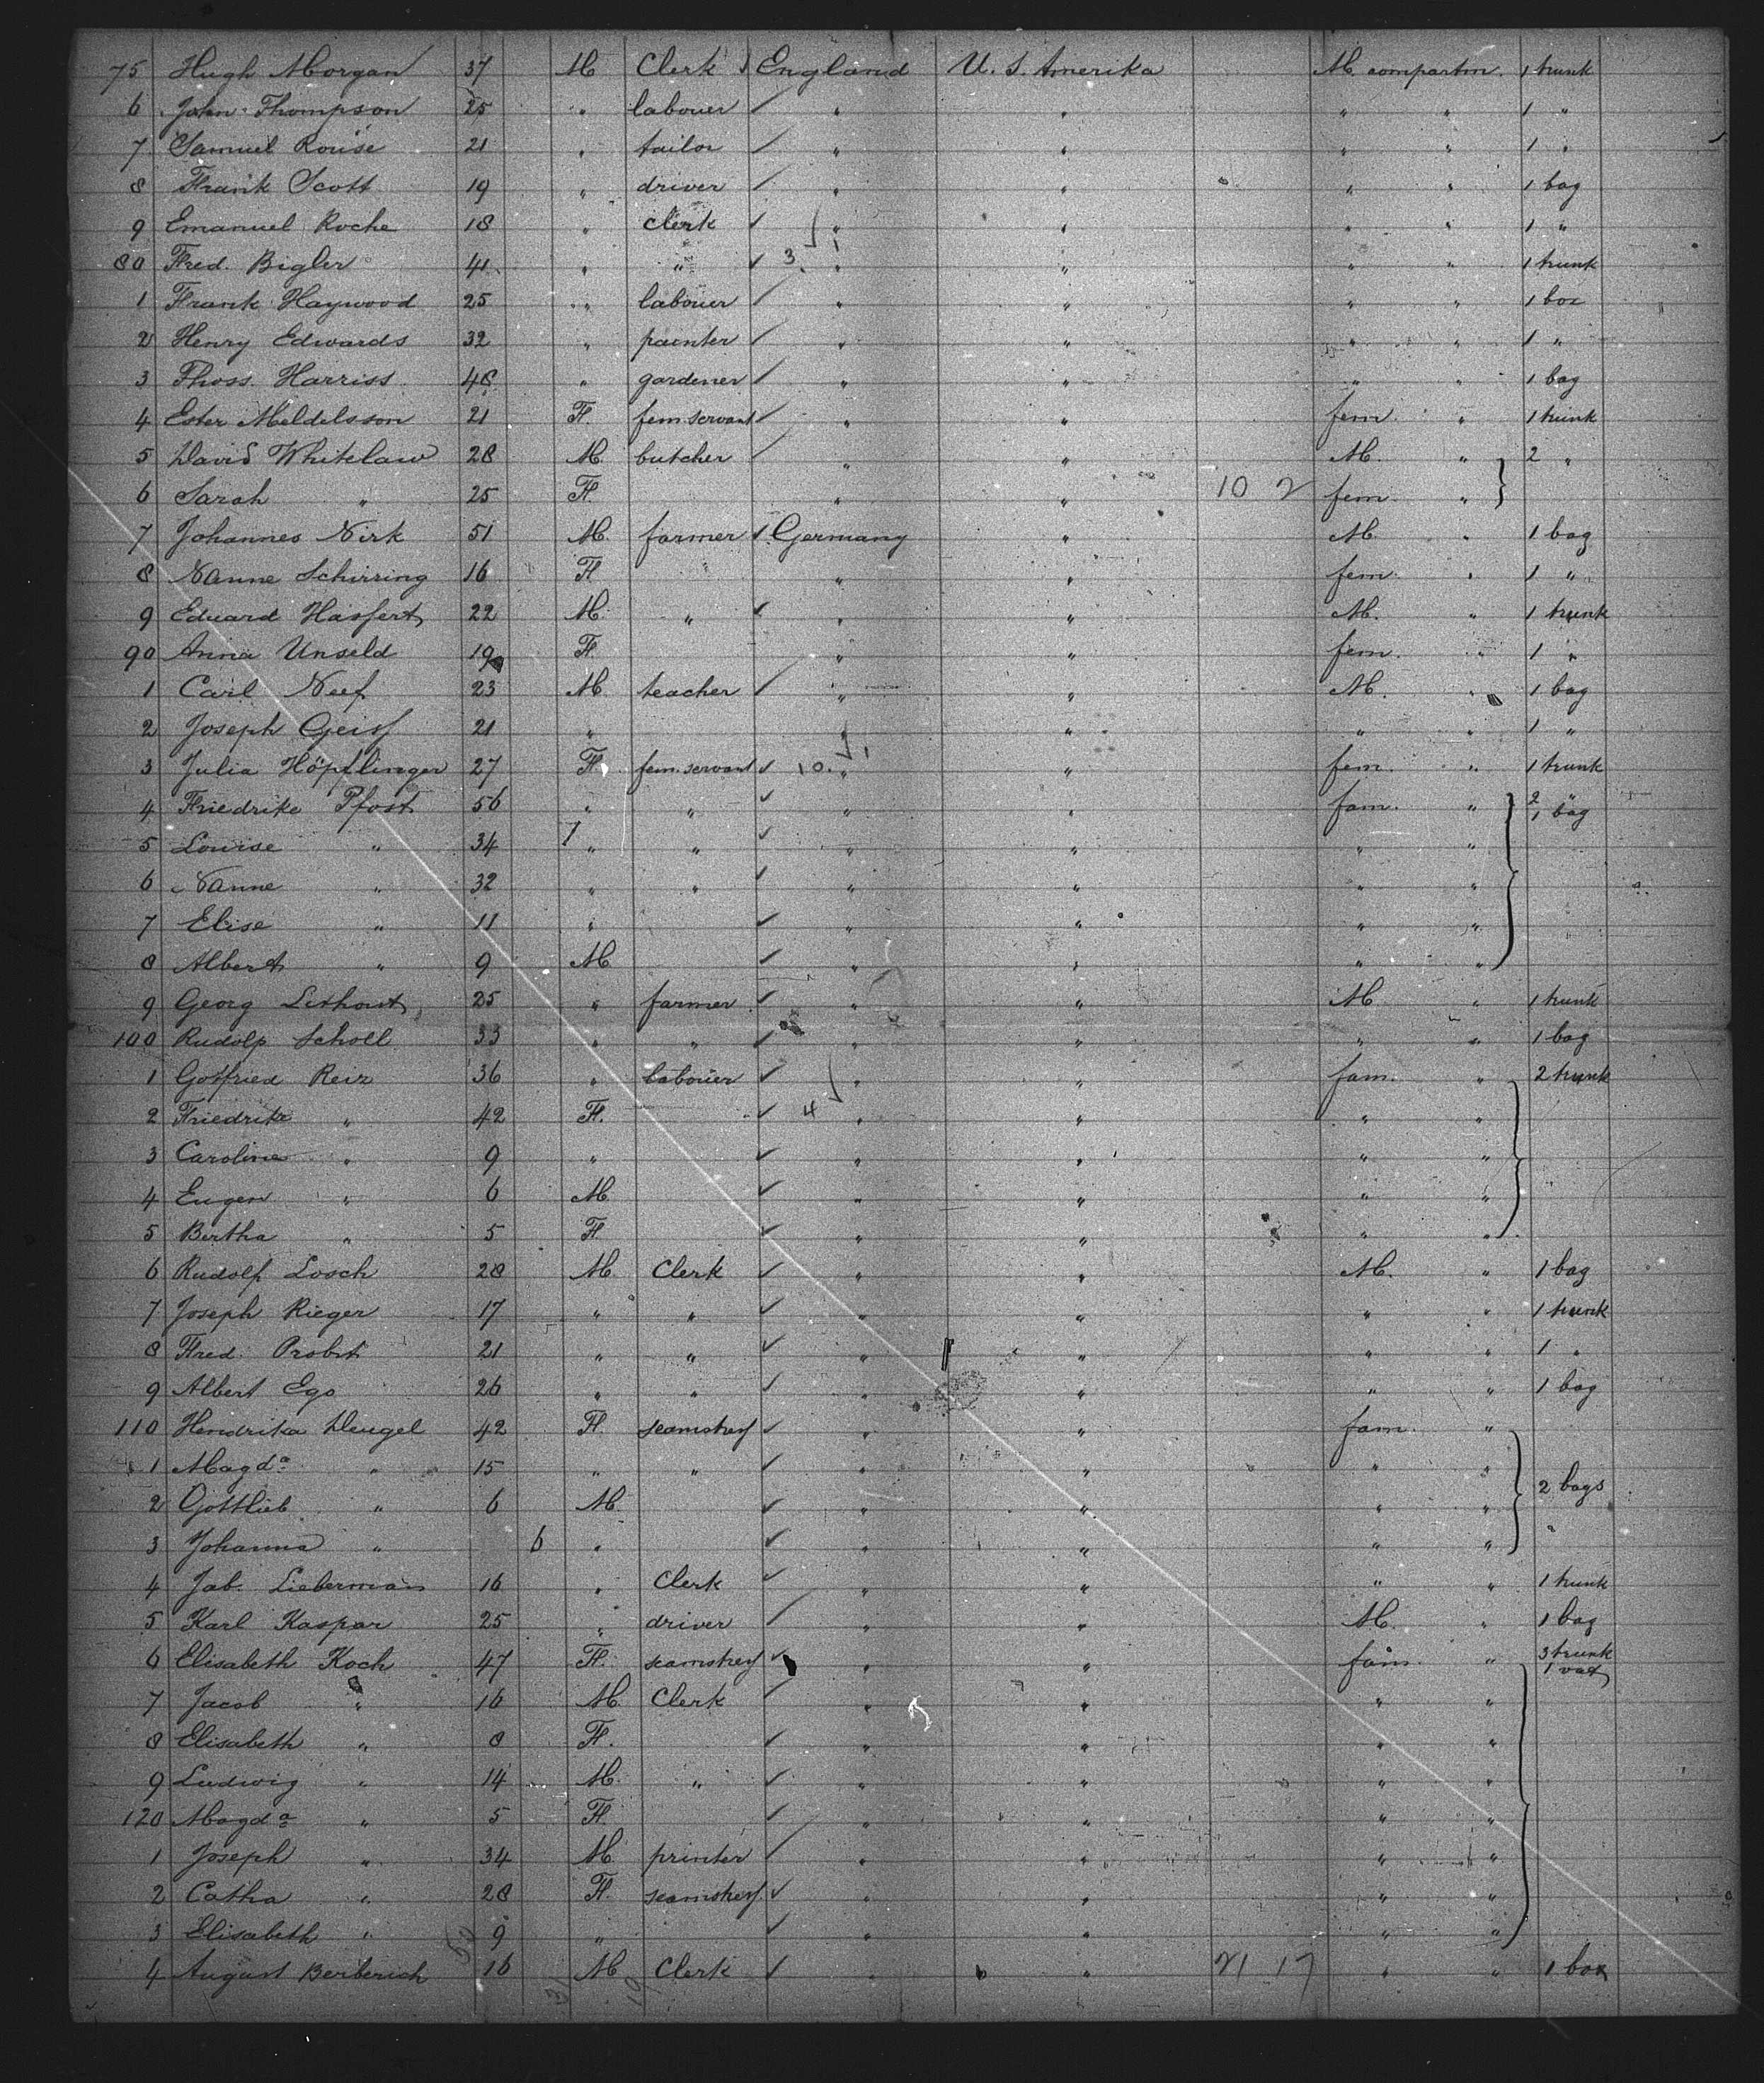 75 Hugh Morgan 37 M Clerk England U. S. Amerika M. compartm. 1 trunk
6 John Thompson 25 " labouer " " " " 1 "
7 Samuel Rouse 21 " tailor " " " " 1 "
8 Frank Scott 19 " driver " " " " 1 bag
9 Emanuel Roche 18 " Clerk " " " " 1 "
80 Fred. Bigler 41 " " 3 " " " " 1 trunk
1 Frank Haywood 25 " labouer " " " " 1 box
2 Henry Edwards 32 " painter " " " " 1 "
3 Thoss. Harriss 48 " gardener " " " " 1 bag
4 Ester Meldelsson 21 F. fem. servant " " fem. " 1 trunk
5 David Whitelaw 28 M. butcher " " M. " 2 "
6 Sarah " 25 F. " " 10 2 fem. "
7 Johannes Nirk 51 M. farmer Germany " M. " 1 bag
8 Nanne Schirring 16 F " " fem. " 1 "
9 Eduard Hasfert 22 M. " " " M. " 1 trunk
90 Anna Unseld 19 F. " " fem. " 1 "
1 Carl Neef 23 M. teacher " " M. " 1 bag
2 Joseph Geiss 21 " " " " " 1 "
3 Julia Höpflinger 27 F. fem. servant 10 " " fem. " 1 trunk
4 Friedrike Pfost 56 " " " " fam. " 2 " 1 bag
5 Louise " 34 " " " " " "
6 Nanne " 32 " " " " " "
7 Elise " 11 " " " " "
8 Albert " 9 M. " " " "
9 Georg 25 " farmer " " M " 1 trunk
100 Rudolf Scholl 33 " " " " " " 1 bag
1 Gotfried Reiz 36 " labouer " " fam. " 2 trunk
2 Friedrike " 42 F. 4 " " " "
3 Caroline " 9 " " " " "
4 Eugen " 6 M. " " " "
5 Bertha " 5 F. " " " "
6 Rudolf Losch 28 M. Clerk " " M. " 1 bag
7 Joseph Rieger 17 " " " " " " 1 trunk
8 Fred. Probst 21 " " " " " " 1 "
9 Albert Ego 26 " " " " " " 1 bag
110 Hendrika Deugel 42 F. seamstress " " fam. "
1 Magda " 15 " " " " " "
2 Gottlieb " 6 M. " " " " 2 bags
3 Johanna " 6 " " " " "
4 Jab. Lieberman 16 " Clerk " " " " 1 trunk
5 Karl Kaspar 25 " driver " " M. " 1 bag
6 Elisabeth Koch 47 F. seamstress " " fam. " 3 trunk 1
7 Jacob " 16 M. Clerk " " " "
8 Elisabeth " 8 F. " " " "
9 Ludwig " 14 M. " " " " "
120 Magda " 5 F. " " " "
1 Joseph " 34 M. printer " " " "
2 Catha " 28 F. seamstress " " " "
3 Elisabeth " 9 " " " " "
4 August Berberich 16 M. Clerk " " 21 17 " " 1 box